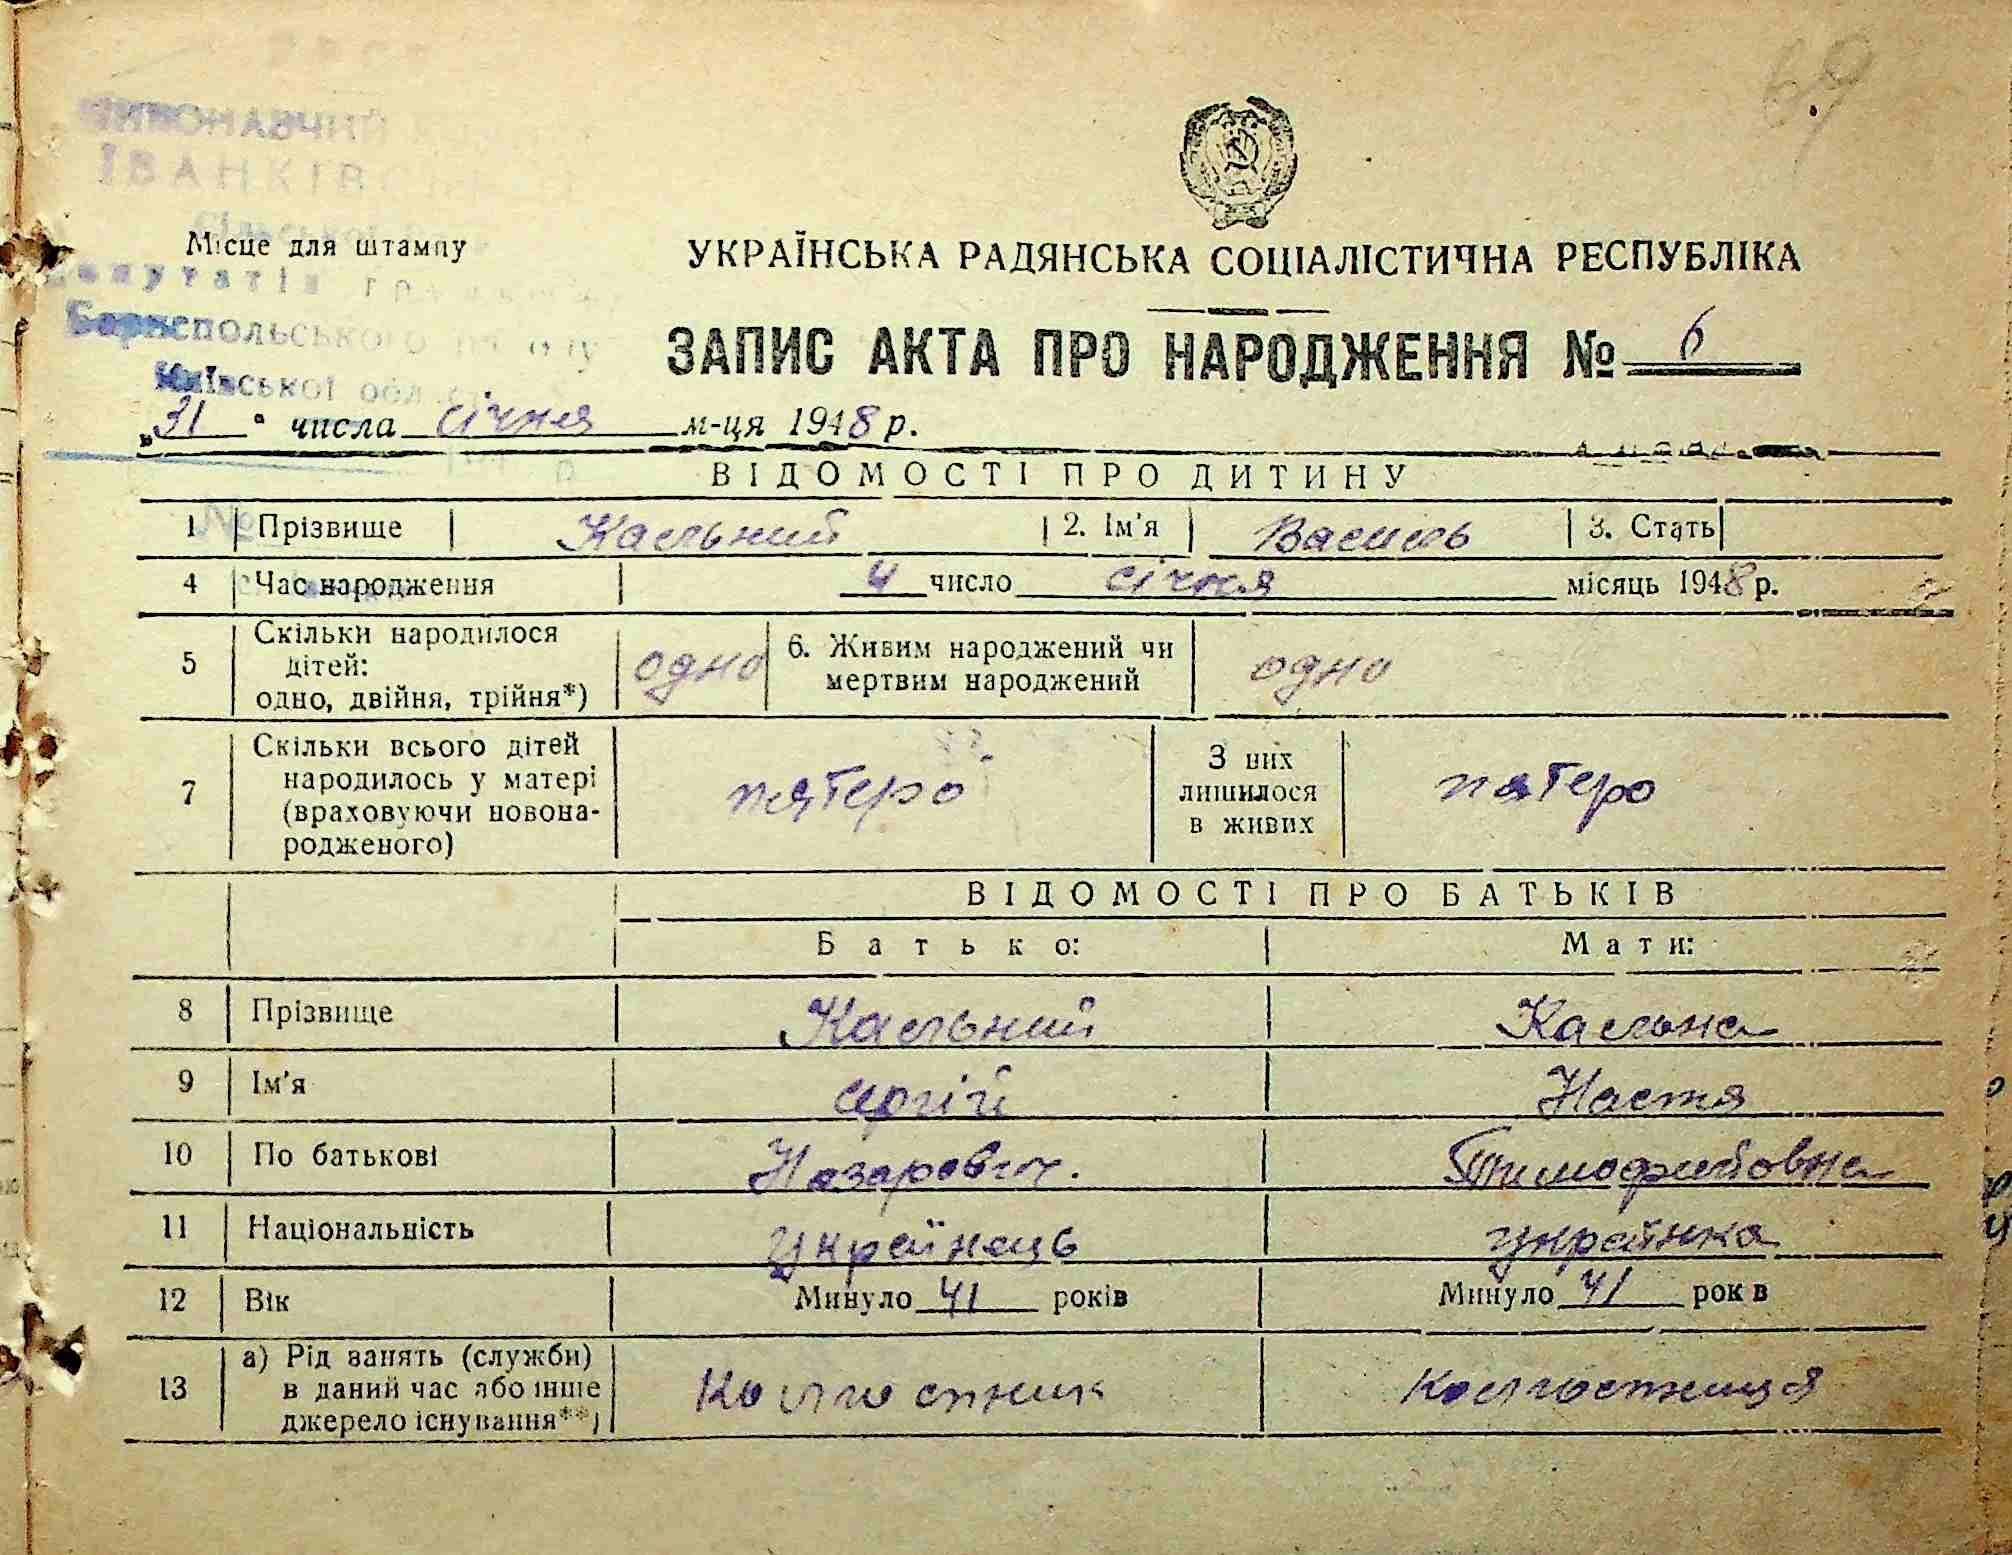 69
УРСР
ВИКОНАВЧИЙ
ІВАНКІВС
Сільської
депутатів трудящих
Бориспольського району
Київської обл
Місце для штампу
УКРАЇНСЬКА РАДЯНСЬКА СОЦІАЛІСТИЧНА РЕСПУБЛІКА
ЗАПИС АКТА ПРО НАРОДЖЕННЯ № 6
„31" числа січня м-ця 1948 р.
ВІДОМОСТІ ПРО ДИТИНУ
1 Прізвище Кальний 2. Ім'я Василь 3. Стать
4 Час народження 4 число січня місяць 1948 р.
5 Скільки народилося дітей: одно, двійня, трійня*) одно 6. Живим народжений чи мертвим народжений одно
7 Скільки всього дітей народилось у матері (враховуючи новонародженого) пятеро З них лишилося в живих пятеро
ВІДОМОСТІ ПРО БАТЬКІВ
Батько: Мати:
8 Прізвище Кальний Кальна
9 Ім'я Сергій Настя
10 По батькові Назарович. Тимофийовна
11 Національність українець українка
12 Вік Минуло 41 років Минуло 41 рок в
13 а) Рід занять (служби) в даний час або інше джерело існування**) Колгоспник колгоспниця